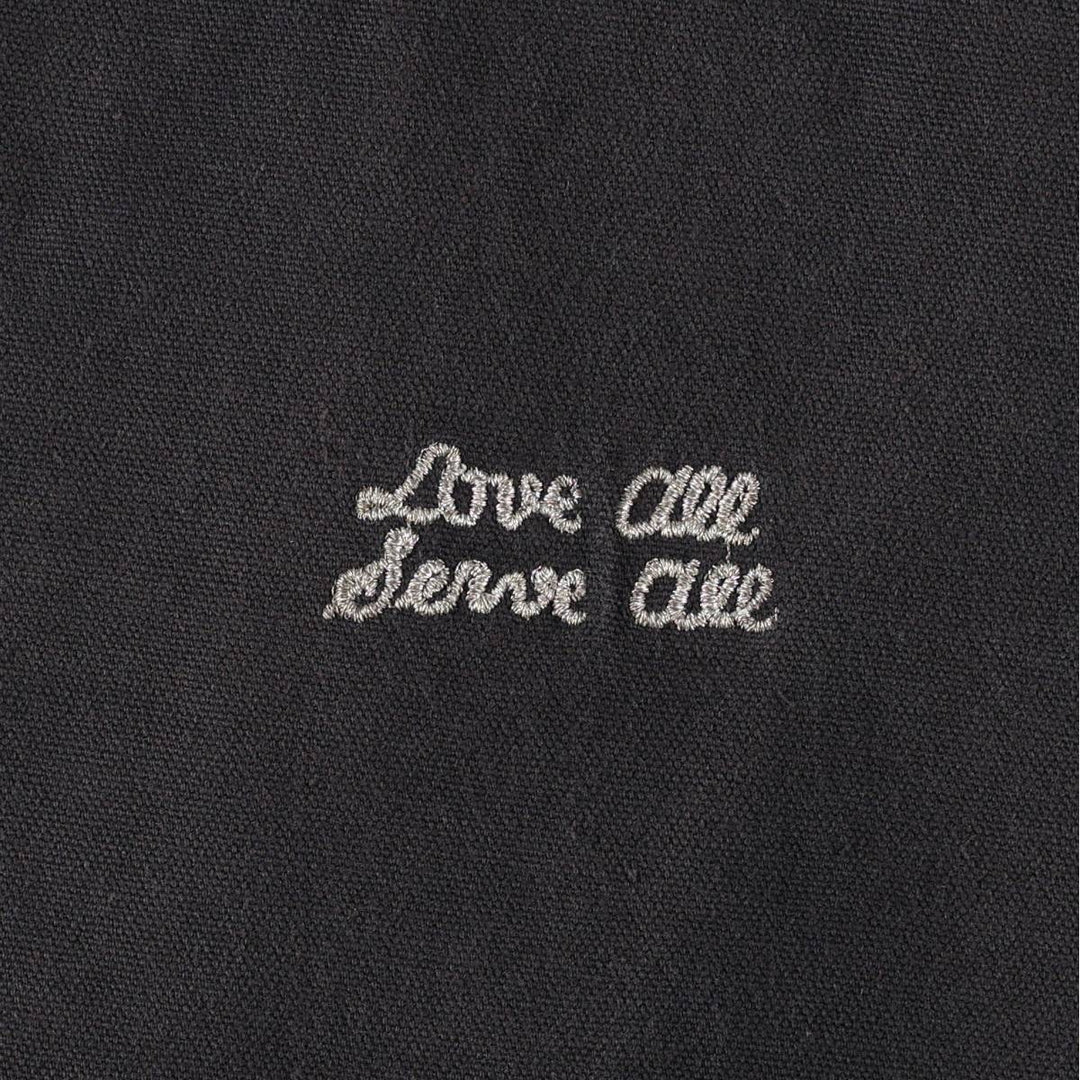 Love all
Serve all